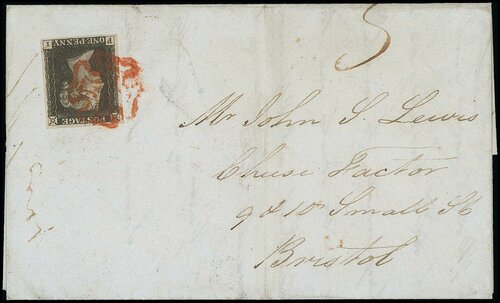 POSTAGE
ONE PENNY
5
Mr John S. Lewis
Cheese Factor
9 & 10 Small St
Bristol